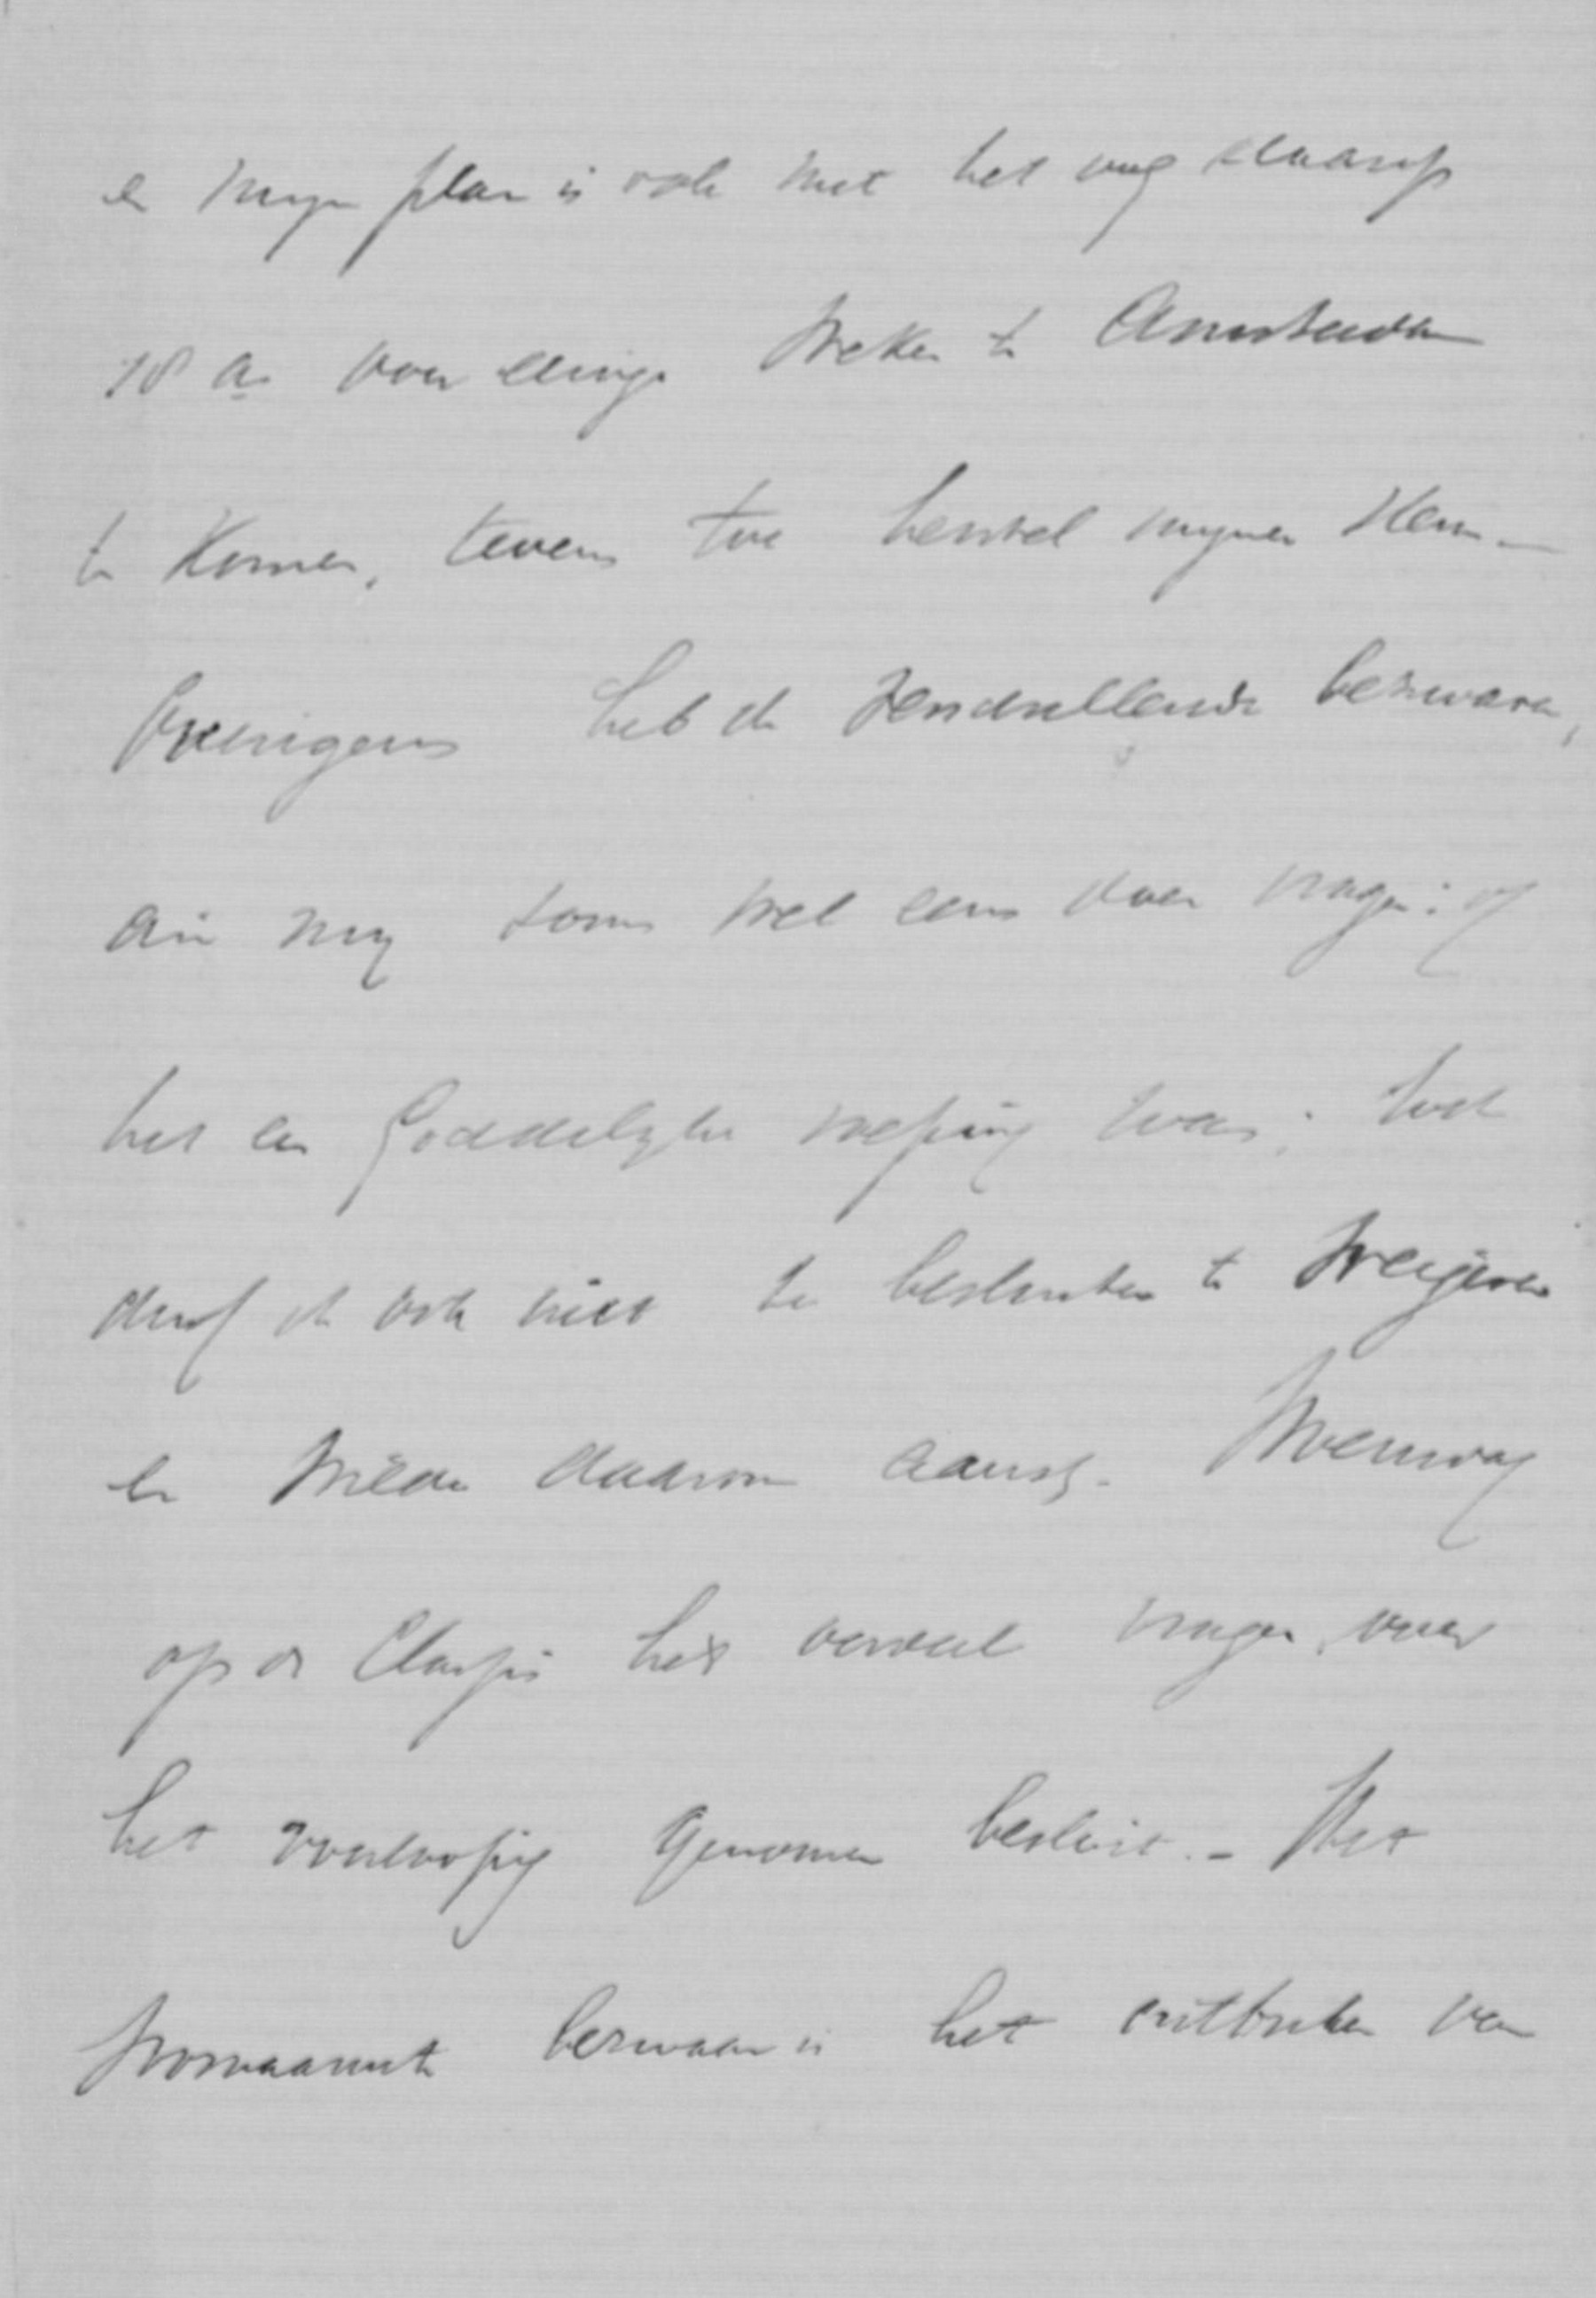 en mijn plan is ook met het oog daarop
18 a. voor eenige weken te Amsterdam
te komen, tevens tot herstel mijner stem.
Overigens heb ik verschillende bezwaren,
die mij soms wel eens doen vragen: of
het een Goddelijke roeping was; toch
durf ik ook niet te besluiten te weigeren
en
op de Classis het oordeel vragen, over
het voorloopig genomen besluit. - Het
voornaamste bezwaar is het ontbreken van